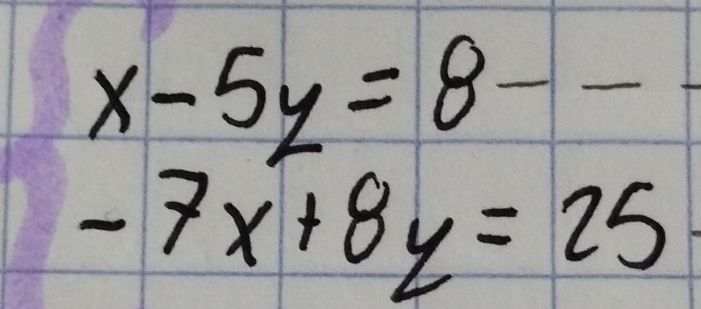 x - 5y = 8 - - -
-7x + 8y = 25 -